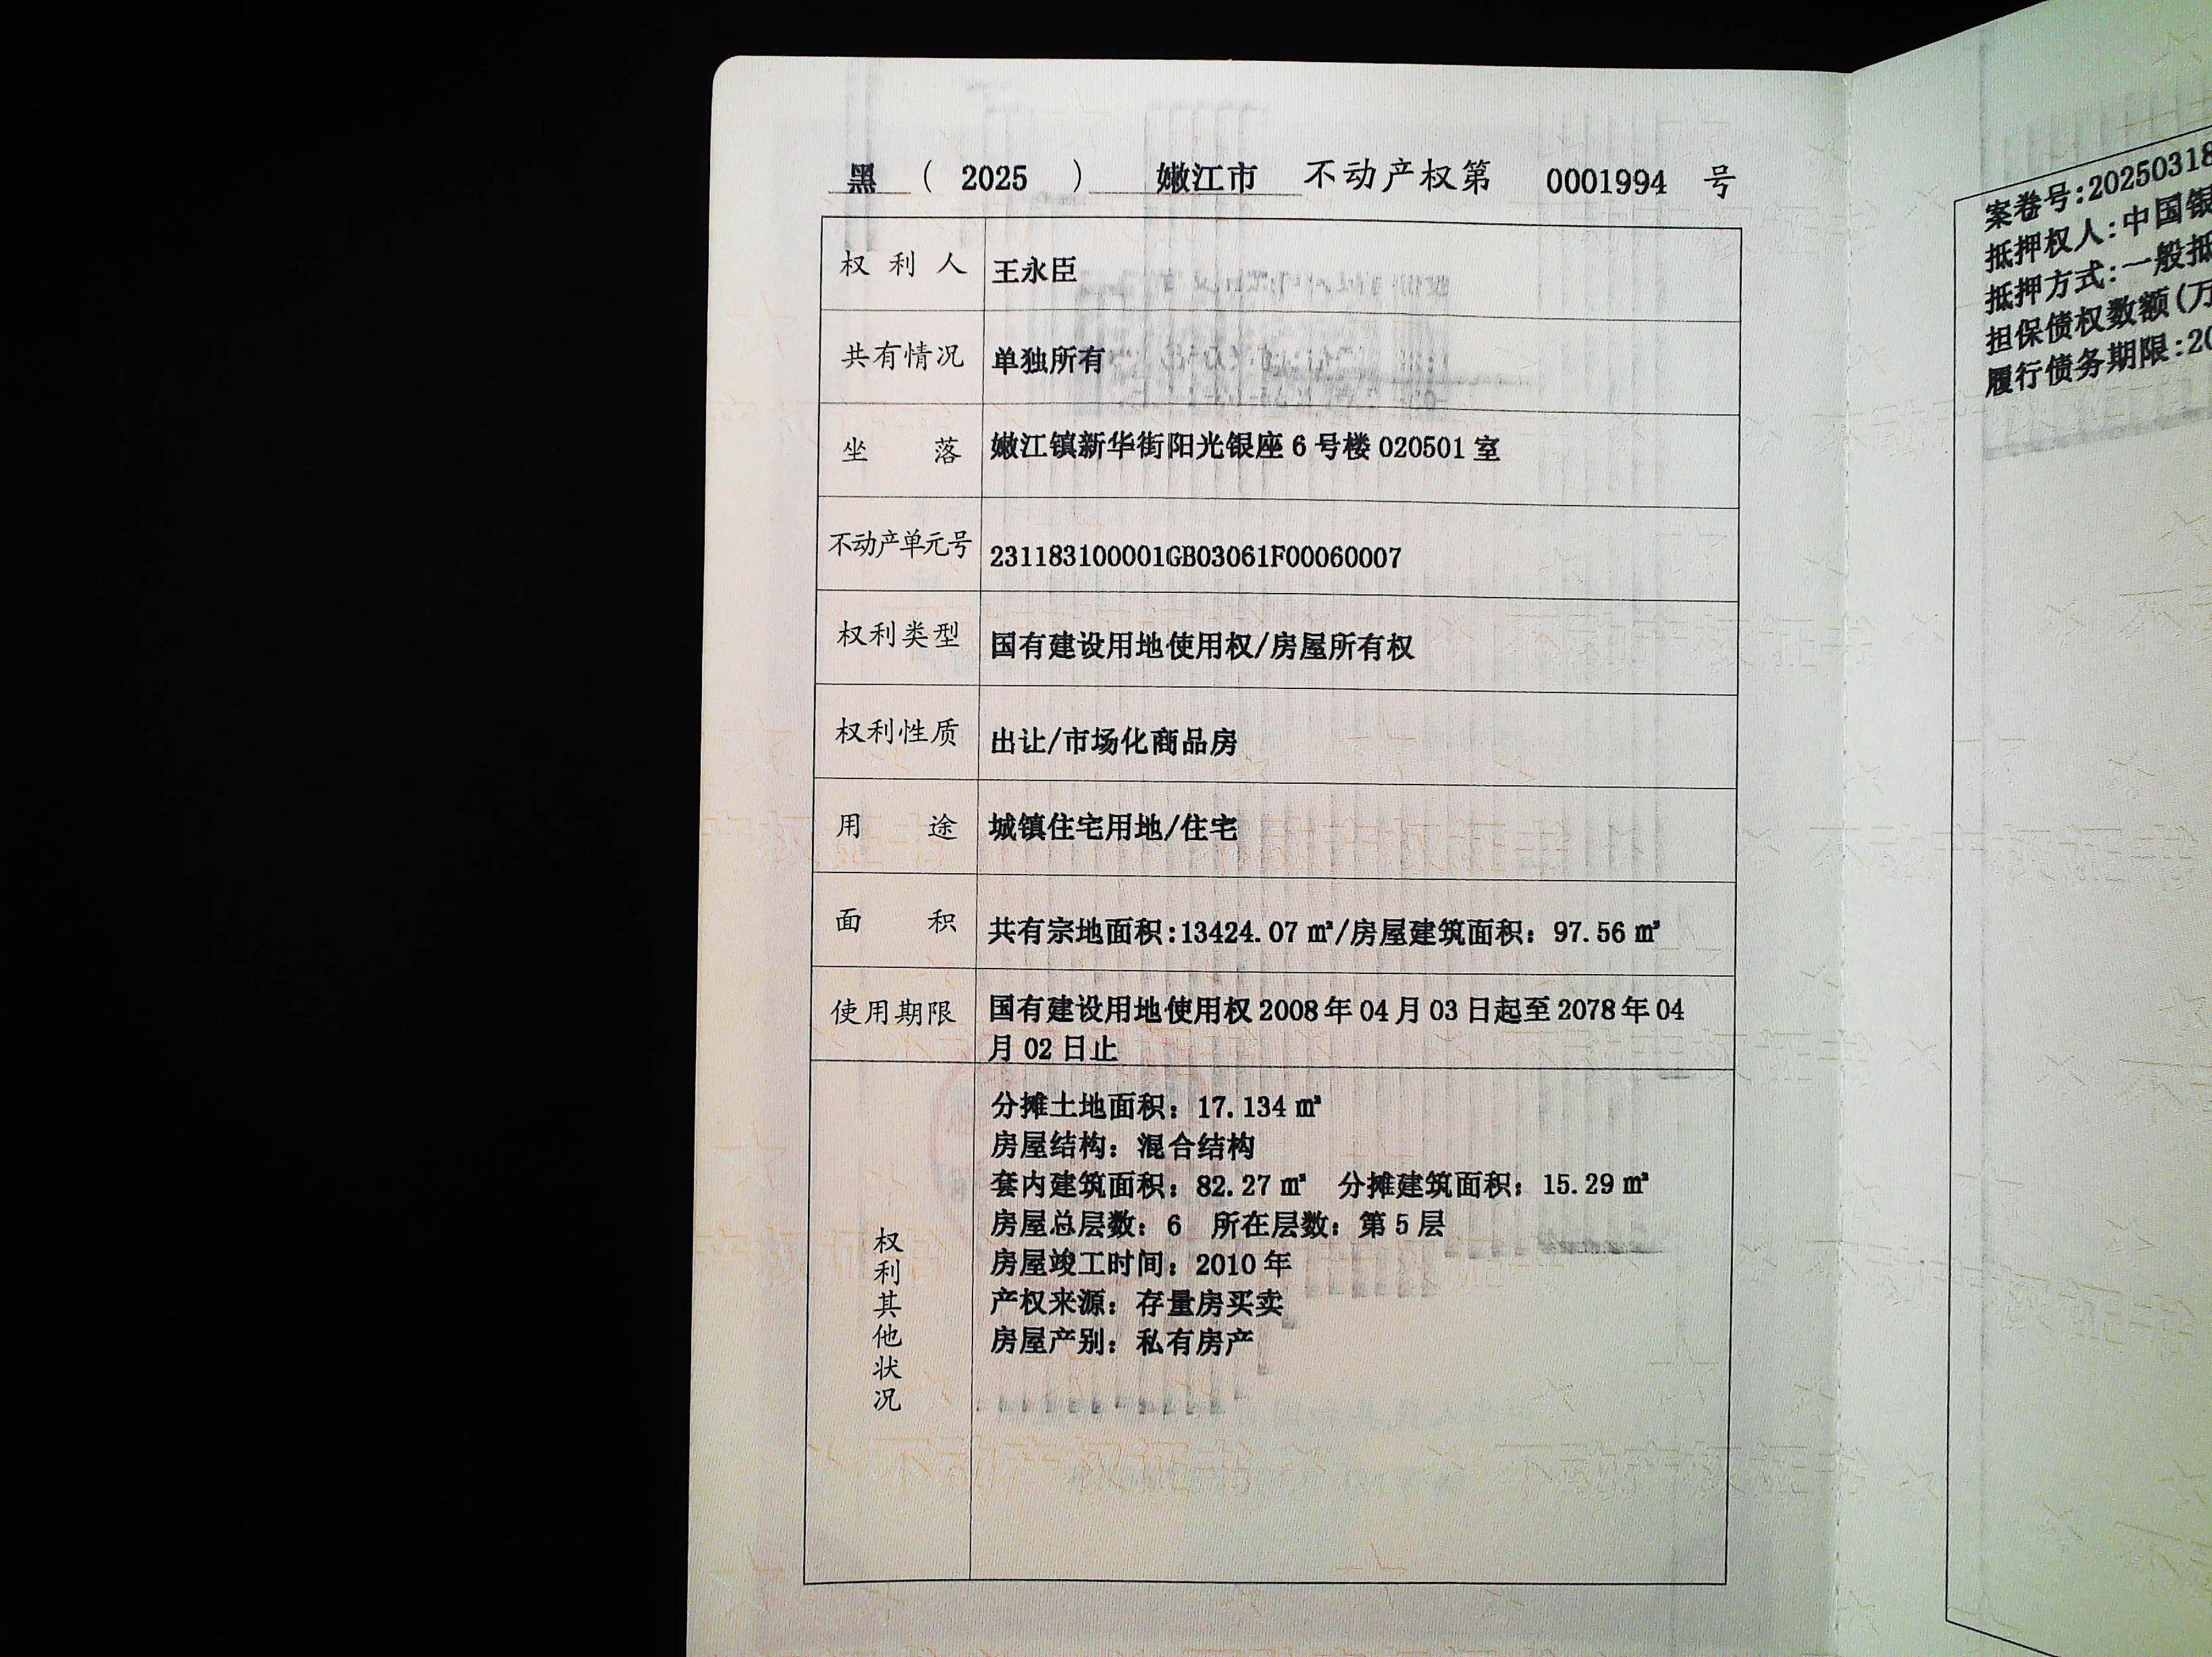 黑 ( 2025 ) 嫩江市 不动产权第 0001994 号
权利人 王永臣
共有情况 单独所有
坐落 嫩江镇新华街阳光银座 6 号楼 020501 室
不动产单元号 231183100001GB03061F00060007
权利类型 国有建设用地使用权/房屋所有权
权利性质 出让/市场化商品房
用途 城镇住宅用地/住宅
面积 共有宗地面积:13424.07 ㎡/房屋建筑面积：97.56 ㎡
使用期限 国有建设用地使用权 2008 年 04 月 03 日起至 2078 年 04
月 02 日止
权利其他状况
分摊土地面积：17.134 ㎡
房屋结构：混合结构
套内建筑面积：82.27 ㎡ 分摊建筑面积：15.29 ㎡
房屋总层数：6 所在层数：第 5 层
房屋竣工时间：2010 年
产权来源：存量房买卖
房屋产别：私有房产
案卷号:20250318
抵押权人:中国银
抵押方式:一般抵
担保债权数额(万
履行债务期限:20